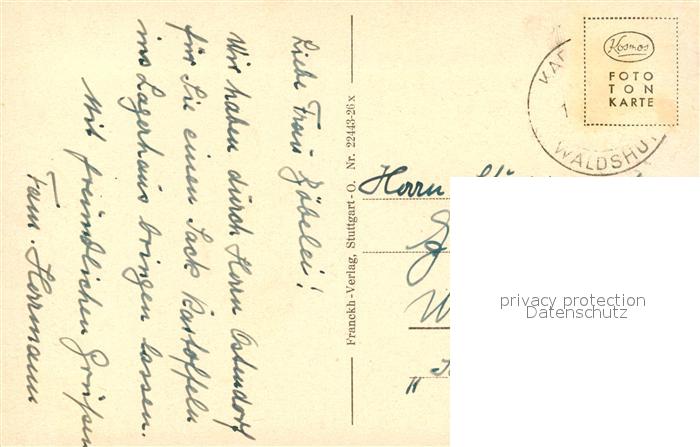 Liebe Frau Göbelei!
Wir haben durch Herrn Ostendorf
für Sie einen Sack Kartoffeln
ins Lagerhaus bringen lassen.
Mit freundlichen Grüßen
Fam. Herrmann
Franckh-Verlag, Stuttgart-O. Nr. 22443-26 x
Kosmos
FOTO
TON
KARTE
WALDSHU
Herrn
privacy protection
Datenschutz